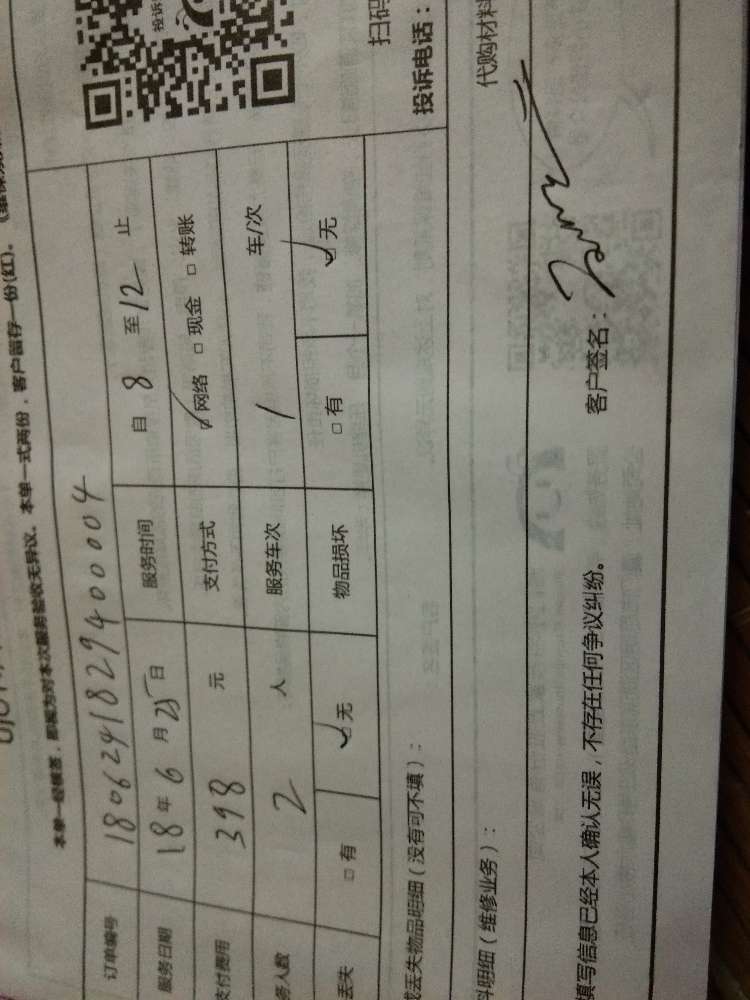 本单一经签，即视为对本次服务验收无异议。本单一式两份，客户留存一份(红)。
订单编号 18062418294000004
服务日期 18年6月25日 服务时间 自8至12止
支付费用 398元 支付方式 ☑网络 □现金 □转账
务人数 2人 服务车次 1 车/次
丢失 □有 ☑无 物品损坏 □有 ☑无
投诉
扫码
投诉电话：
或丢失物品明细（没有可不填）：
料明细（维修业务）： 代购材料
填写信息已经本人确认无误，不存在任何争议纠纷。 客户签名：